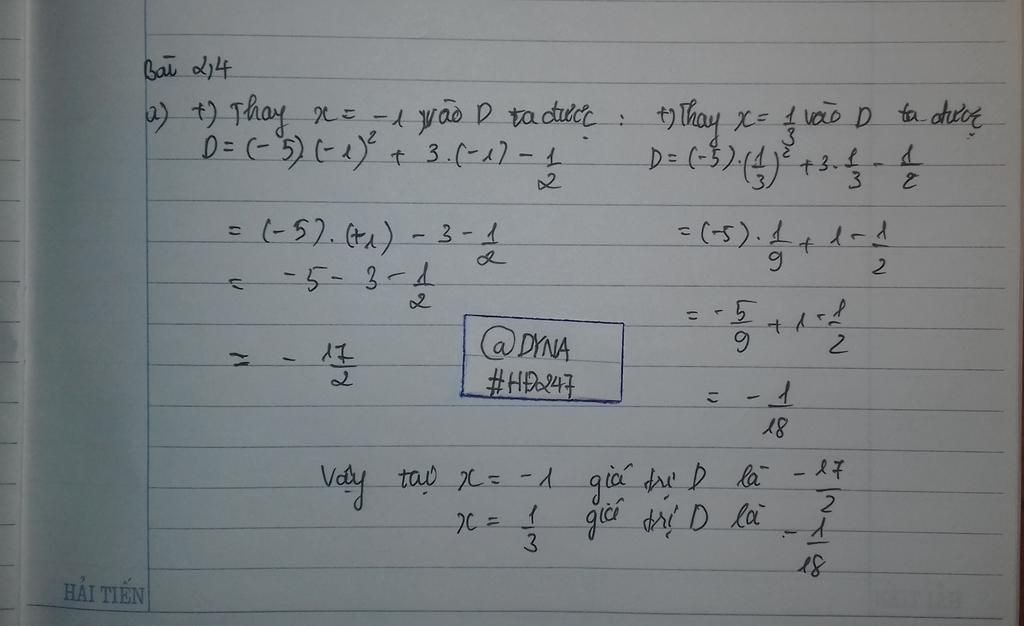 Bài 2,4
a) +) Thay x = -1 vào D ta được :
D = (-5)(-1)² + 3.(-1) - 1/2
= (-5).(+1) - 3 - 1/2
= -5 - 3 - 1/2
= - 17/2
+) Thay x = 1/3 vào D ta được
D = (-5).(1/3)² + 3.1/3 - 1/2
= (-5).1/9 + 1 - 1/2
= -5/9 + 1 - 1/2
= - 1/18
@DYNA
#HĐ247
Vậy tại x = -1 giá trị D là - 17/2
x = 1/3 giá trị D là - 1/18
HẢI TIẾN